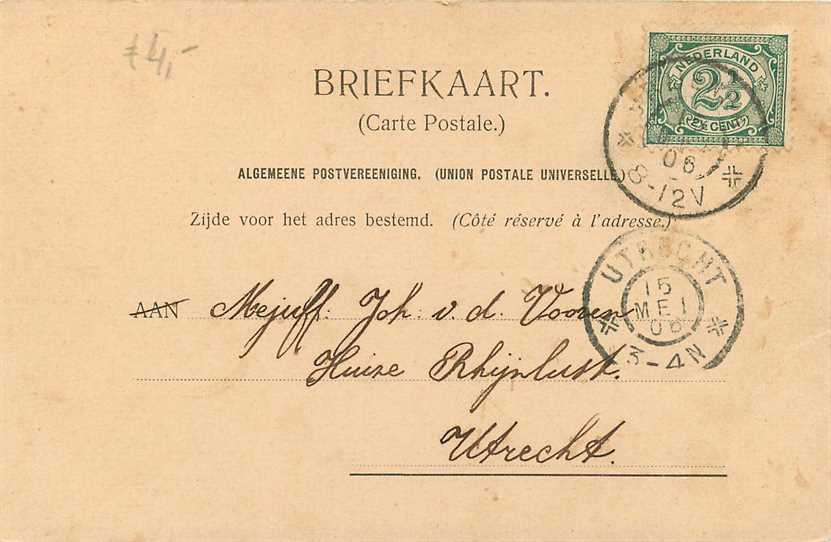 €4,-
NEDERLAND
2½
2½ CENT
06
8-12V
BRIEFKAART.
(Carte Postale.)
ALGEMEENE POSTVEREENIGING. (UNION POSTALE UNIVERSELLE)
Zijde voor het adres bestemd. (Côté réservé à l'adresse.)
UTRECHT
15
MEI
06
3-4N
AAN Mejuff. Joh. v. d. Vooren
Huize Rhijnlust.
Utrecht.